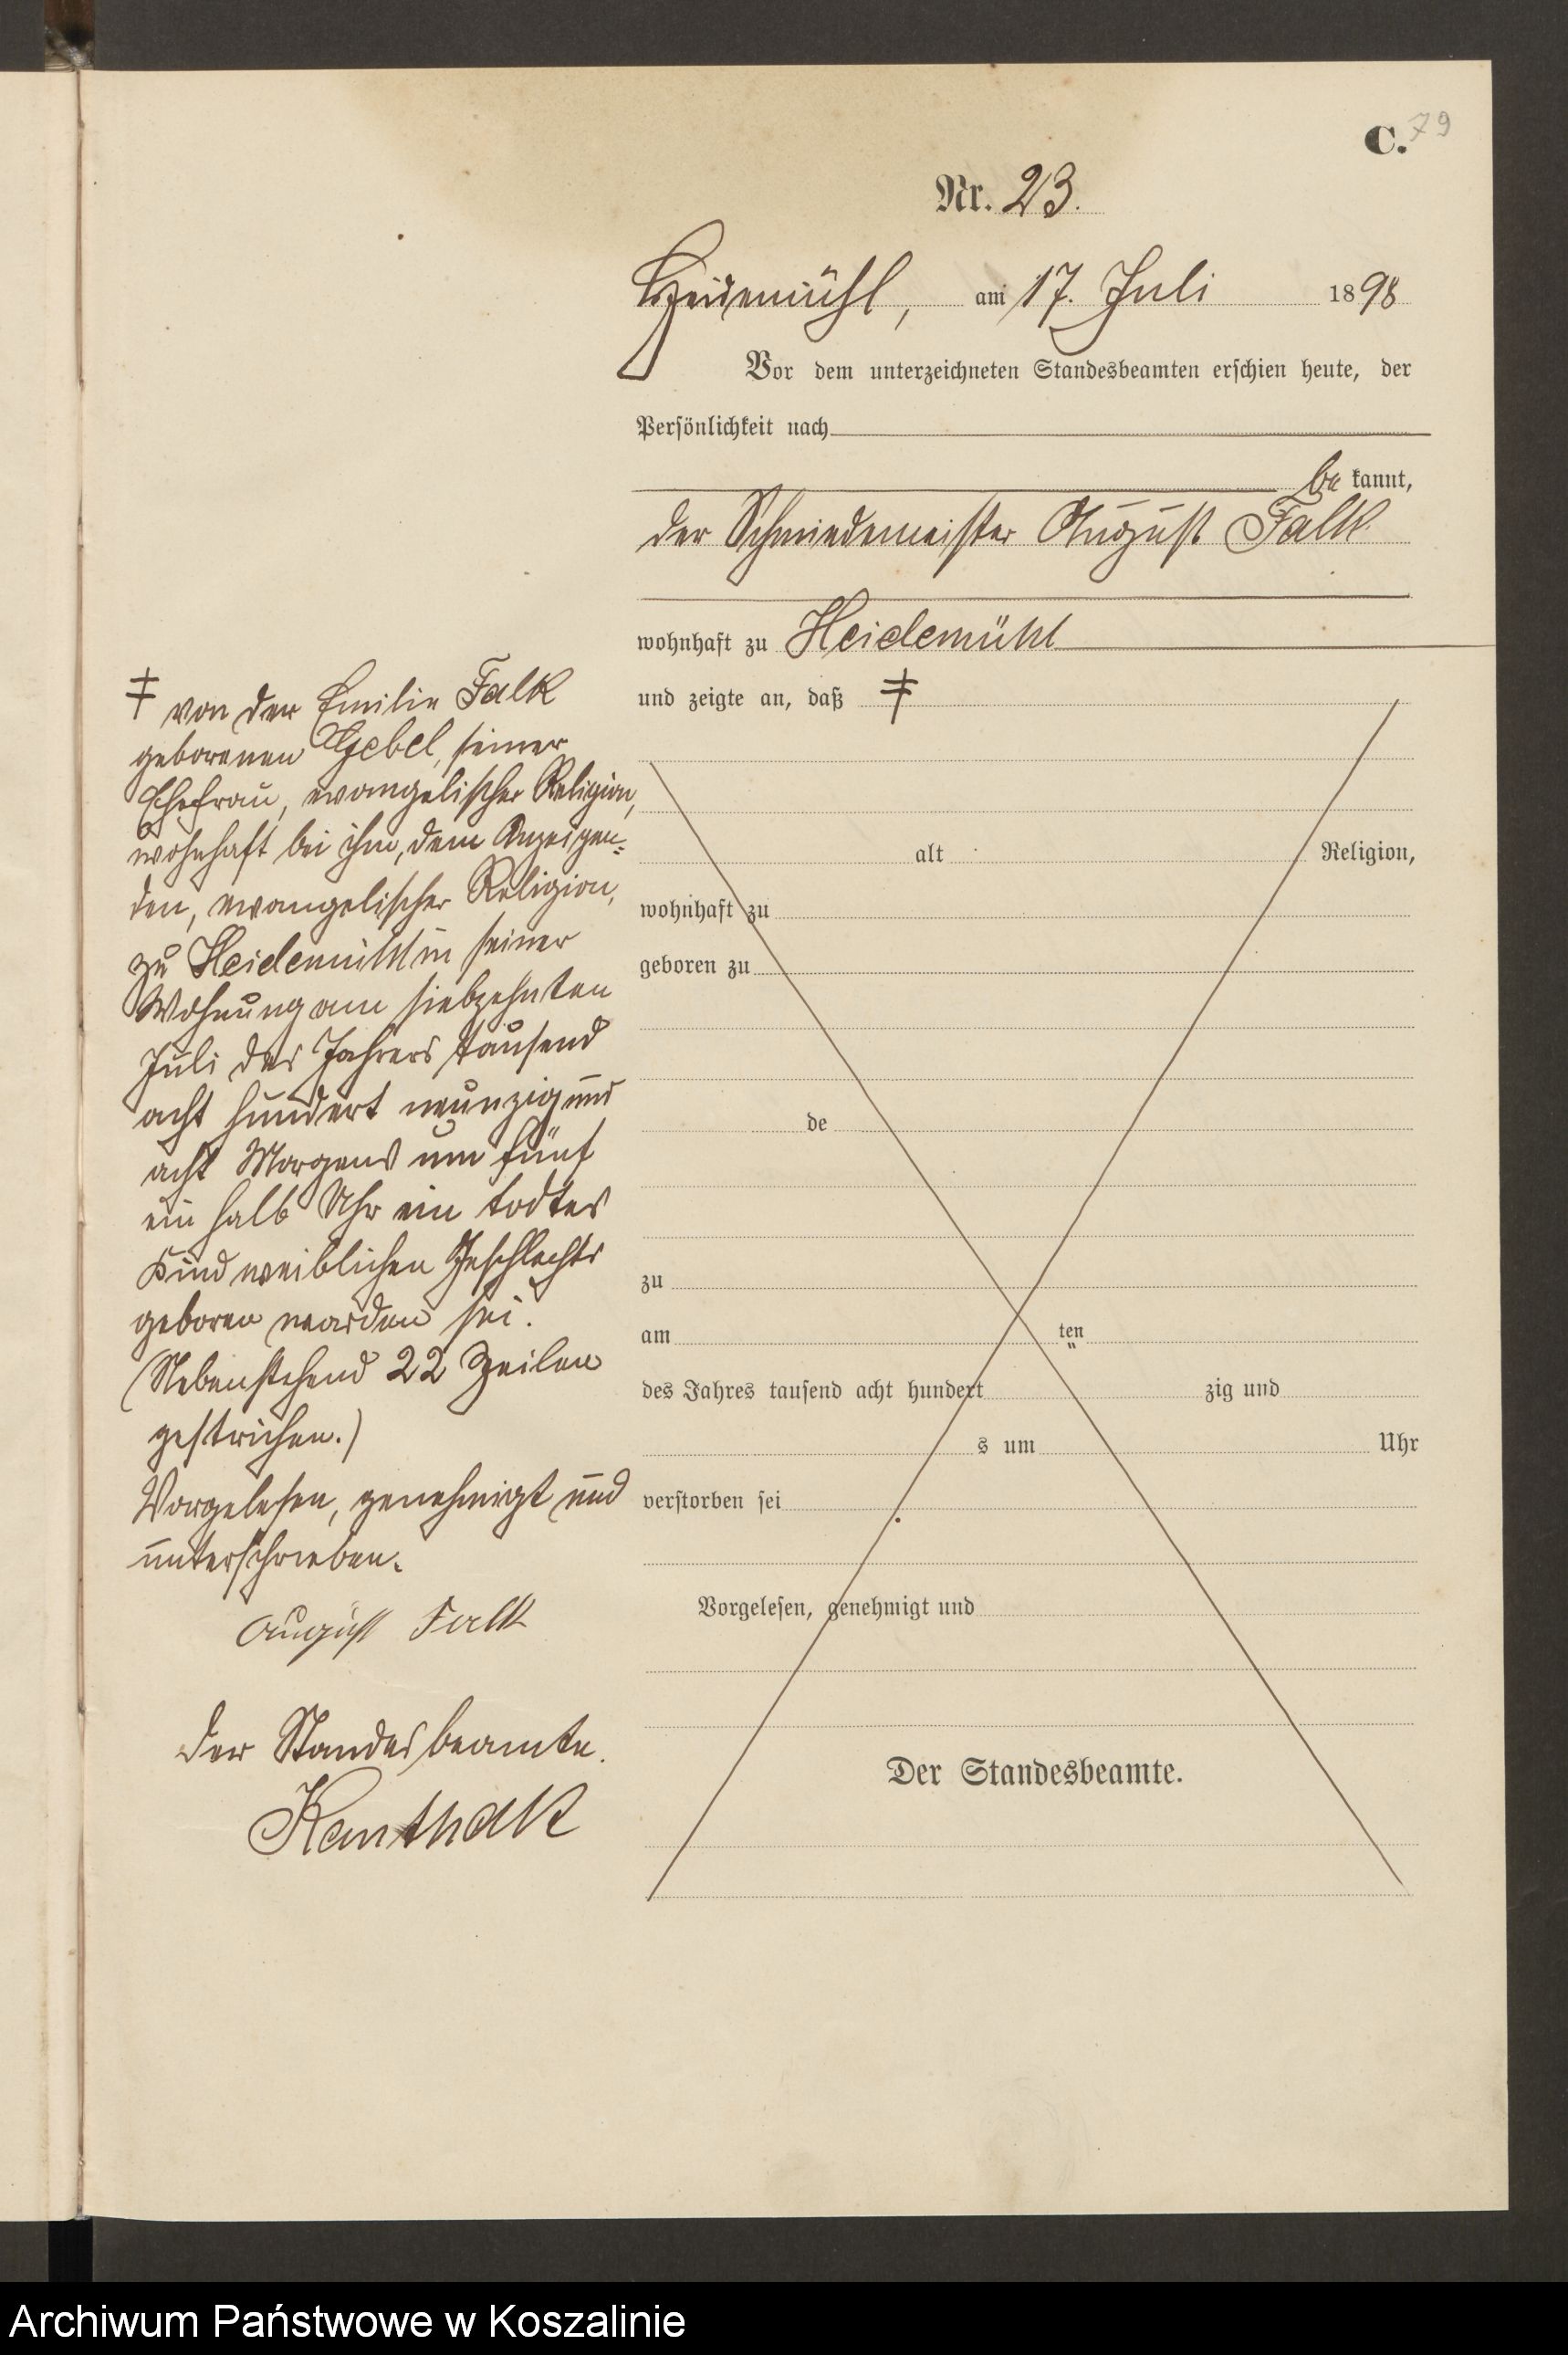 C. 79
Nr. 23.
Heidemühl, am 17. Juli 1898
Vor dem unterzeichneten Standesbeamten erschien heute, der
Persönlichkeit nach
be kannt,
der Schmiedemeister August Falk
wohnhaft zu Heidemühl
und zeigte an, daß ‡
‡ von der Emilie Falk
geborenen Gebel, seiner
Ehefrau, evangelischer Religion,
wohnhaft bei ihm, dem Anzeigen=
den, evangelischer Religion,
zu Heidemühl in seiner
Wohnung am siebzehnten
Juli des Jahres tausend
acht hundert neunzig und
acht Morgens um fünf
ein halb Uhr ein todtes
Kind weiblichen Geschlechts
geboren worden sei.
(Nebenstehend 22 Zeilen
gestrichen.)
Vorgelesen, genehmigt und
unterschrieben.
August Falk
Der Standesbeamte.
Kanthak
alt Religion,
wohnhaft zu
geboren zu
de
zu
am ten
des Jahres tausend acht hundert zig und
s um Uhr
verstorben sei
Vorgelesen, genehmigt und
Der Standesbeamte.
Archiwum Państwowe w Koszalinie